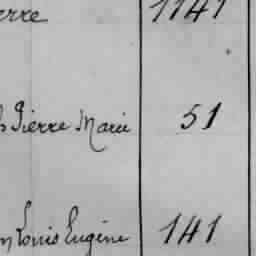 erre 1141
Pierre Marie 51
Louis Eugène 141